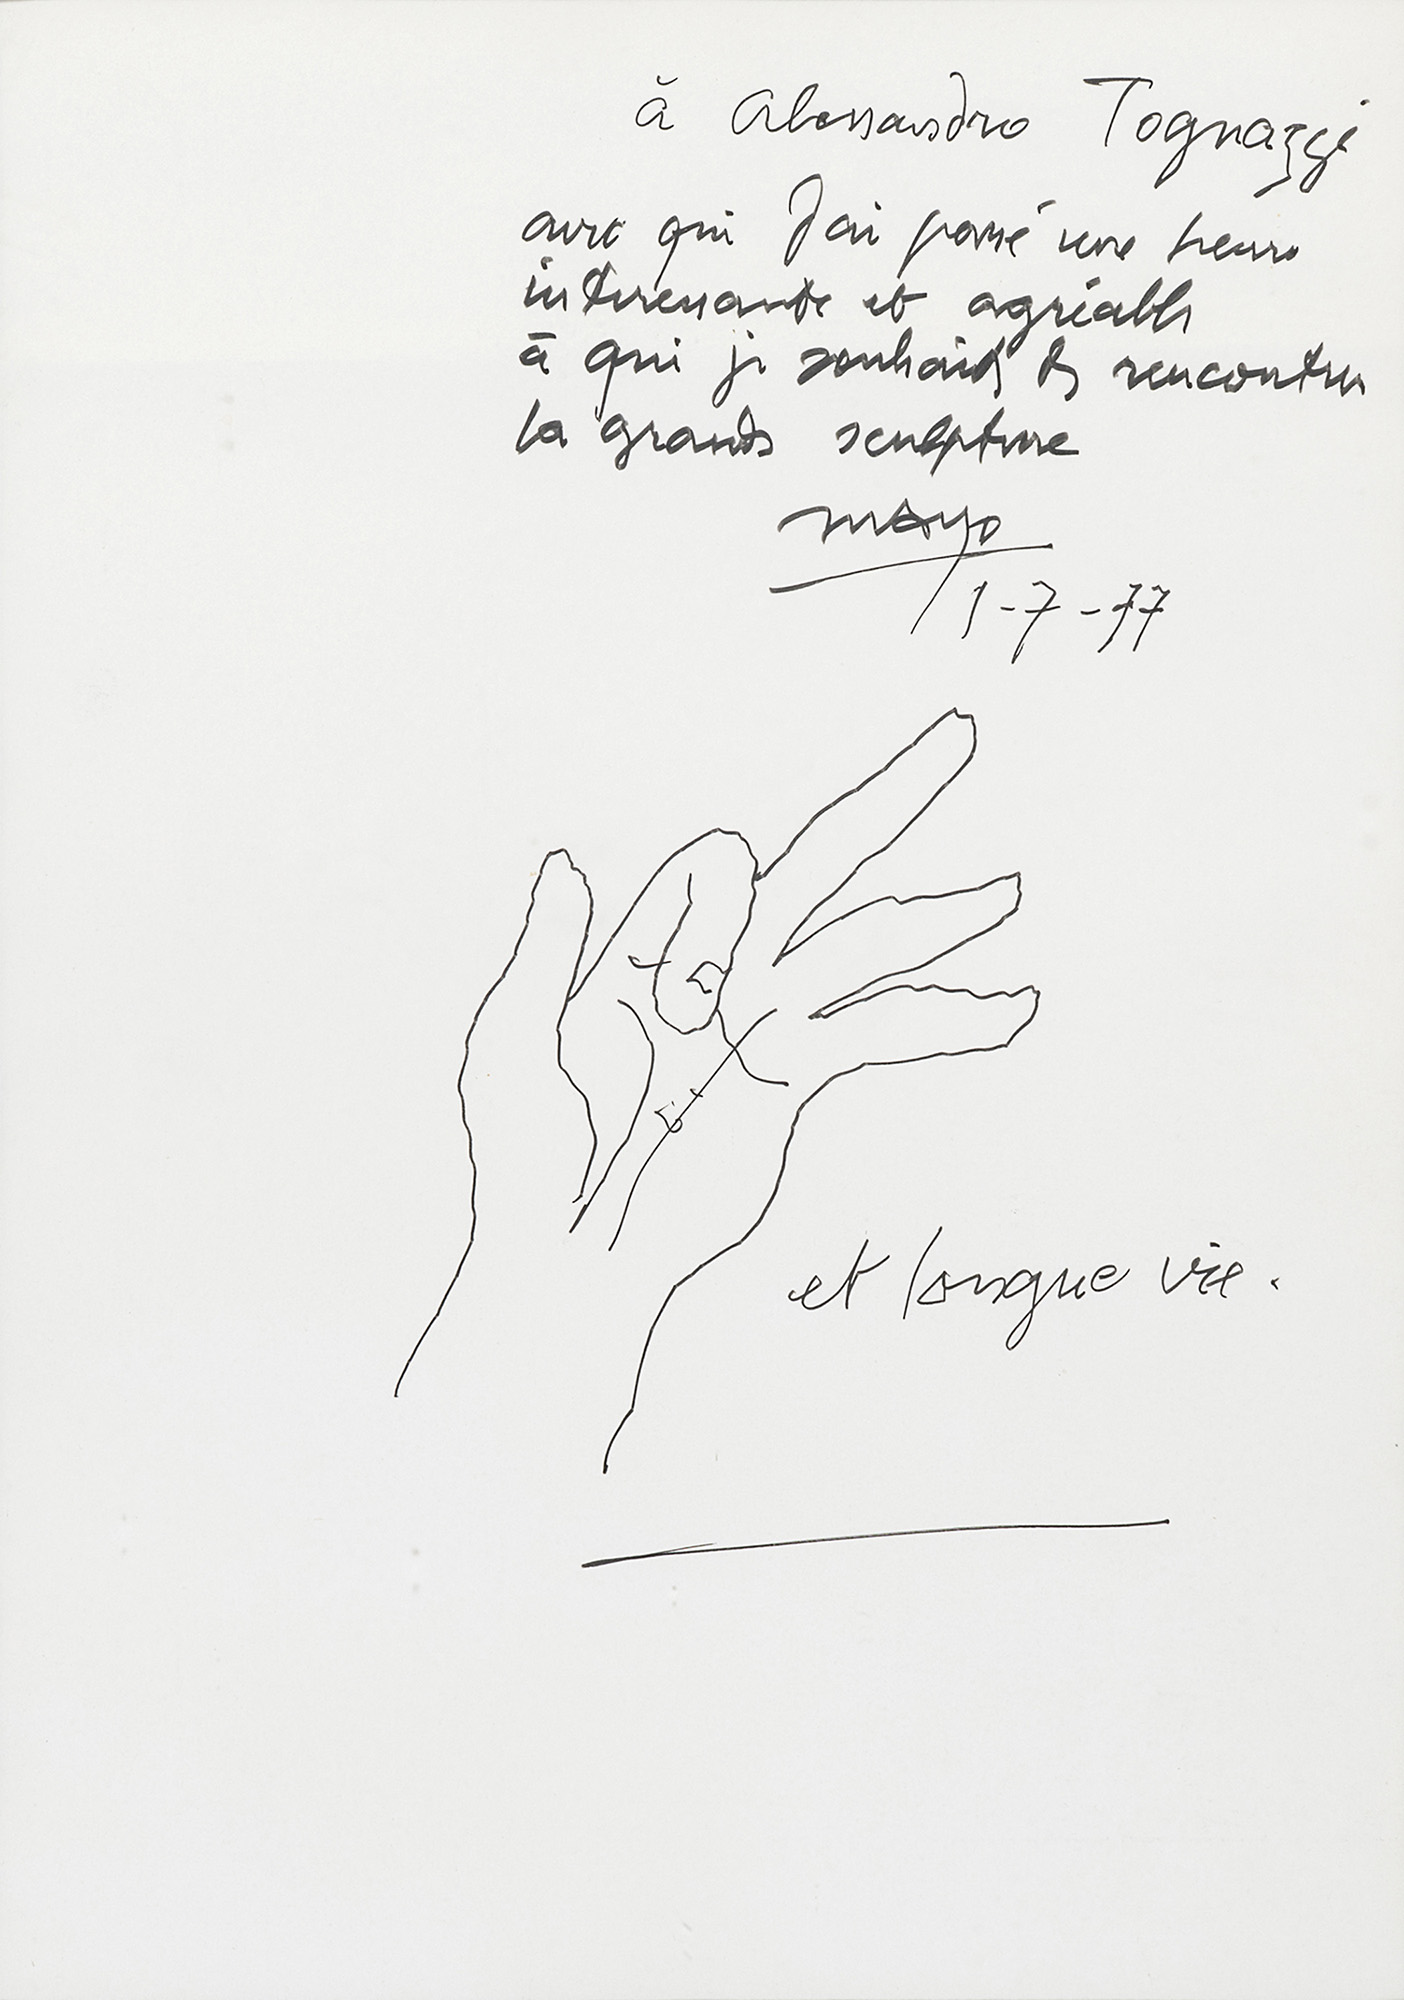 à Alessandro Tognazzi
avec qui J'ai passé une heure
interessante et agréable
à qui je souhaite de rencontrer
la grande sculpture
MAYO
1-7-77
et longue vie.